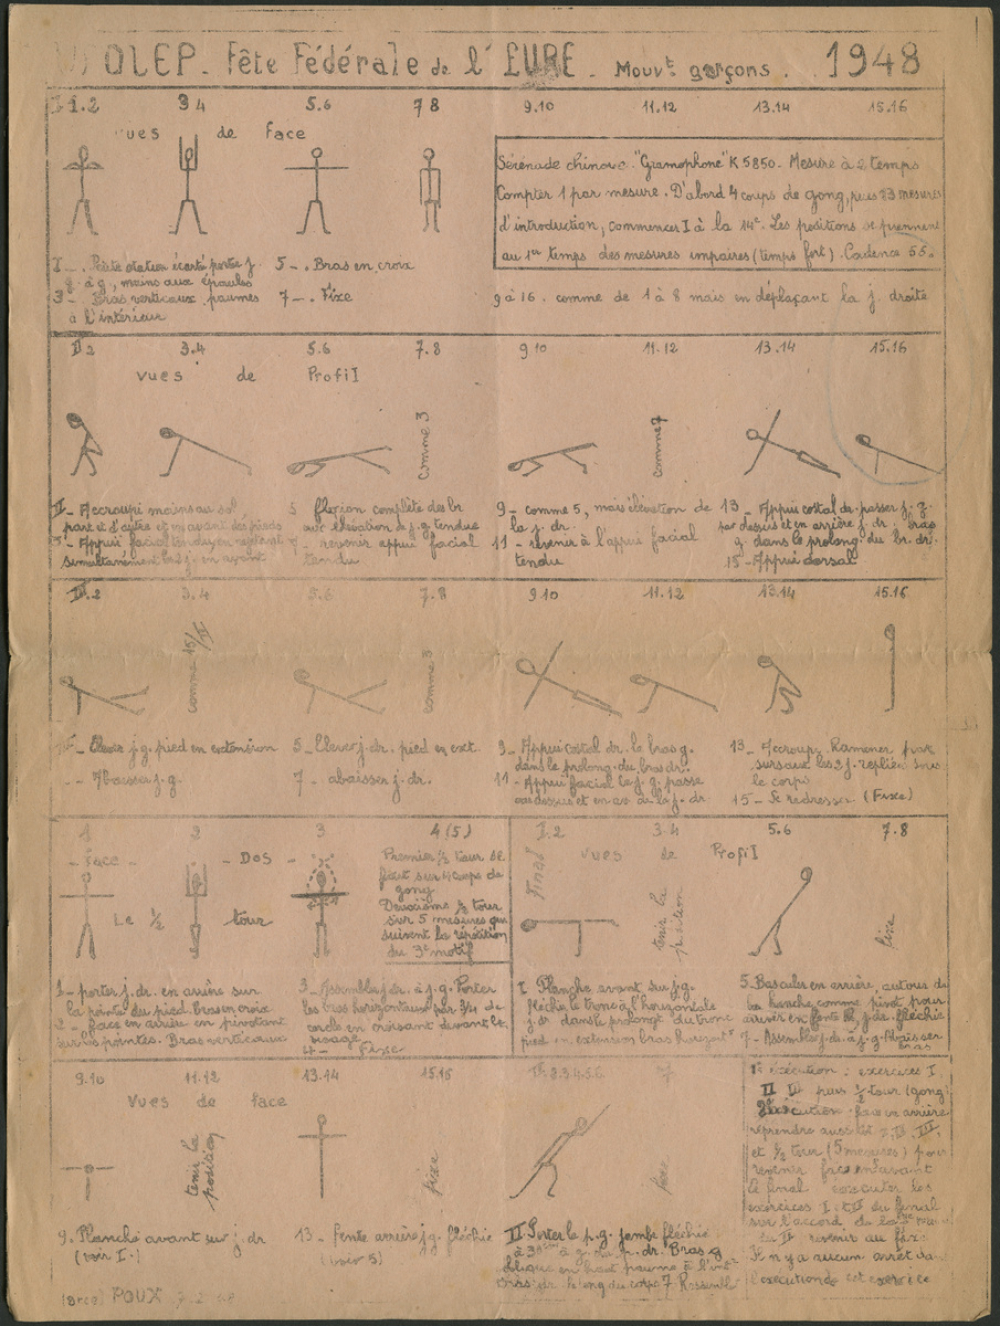 OLEP - Fête Fédérale de l'EURE - Mouvt garçons. 1948
I-1.2 3 4 5.6 7 8 9.10 11.12 13.14 15.16
vues de face
Sérénade chinoise "Gramophone" K 5850 - Mesure à 2 temps
Compter 1 par mesure. D'abord 4 coups de gong, puis 13 mesures
d'introduction, commencez I à la 14e. Les positions se prennent
au 1er temps des mesures impaires (temps fort). Cadence 55.
1 - . Petite station écarté porter j.
g. à g., mains aux épaules
3 - Bras verticaux paumes
à l'intérieur
5 - . Bras en croix
7 - . Fixe
9 à 16. comme de 1 à 8 mais en déplaçant la j. droite
II 2 3.4 5.6 7.8 9 10 11.12 13.14 15.16
vues de Profil
comme 3
comme 7
II - Accroupi mains au sol
part et d'autre et en avant des pieds
3 - Appui facial tendu en rejetant
simultanément les j. en arrière
5 flexion complète des br
avec élévation de j. g. tendue
7 - revenir appui facial
tendu
9 - comme 5, mais élévation de
la j. dr.
11 - revenir à l'appui facial
tendu
13 - Appui costal dr. passer j. g.
par dessus et en arrière j. dr. bras
g. dans le prolong. du br. dr.
15 - Appui dorsal
III.2 3.4 5.6 7.8 9 10 11.12 13.14 15.16
comme 15/II
comme 3
III - Elever j. g. pied en extension
- Abaisser j. g.
5 - Elever j. dr. pied en ext.
7 - abaisser j. dr.
9 - Appui costal dr. le bras g.
dans le prolong. du bras dr.
11 - Appui facial la j. g. passe
au dessus et en av. de la j. dr
13 - Accroupi. Ramener par
sursaut les 2 j. repliées sous
le corps
15 - Se redresser (Fixe)
1 2 3 4 (5)
- Face - - Dos -
Le ½ tour
Premier ½ tour se
fait sur 4 coups de
gong
Deuxième ½ tour
sur 5 mesures qui
suivent la répétition
du 3e motif
1 - porter j. dr. en arrière sur
la pointe du pied. bras en croix
2 - face en arrière en pivotant
sur les pointes. Bras verticaux
3 - Assembler j. dr. à j. g. Porter
les bras horizontaux par ¾ de
cercle en croisant devant le
visage
4 - Fixe
Final
I.2 3.4 5.6 7.8
vues de Profil
tenir la
position
fixe
I Planche avant sur j. g.
fléchir le tronc à l'horizontale
j. dr dans le prolongt du tronc
pied en extension bras horizont
5. Basculer en arrière, autour de
la hanche comme pivot pour
arriver en fente AR, j. dr. fléchie
7 - Assembler j. dr. à j. g. Abaisser
bras
9.10 11.12 13.14 15.16 II.2.3.4.5.6 7
Vues de face
tenir la
position
fixe
fixe
9. Planche avant sur j. dr
(voir I.)
13 - fente arrière j. g. fléchie
(voir 5)
II Porter le p. g. jambe fléchie
à g. du p. dr. Bras g
oblique en haut paume à l'intr
Bras dr. le long du corps 7 Rassembler
1e exécution : exercices I.
II III puis ½ tour (gong)
2e exécution face en arrière
reprendre aussi I, II, III,
et ½ tour (5 mesures) pour
revenir face en avant
le final exécuter les
exercices I et II du final
sur l'accord de la
revenir au fixe
Il n'y a aucun arrêt
POUX 7.2.48